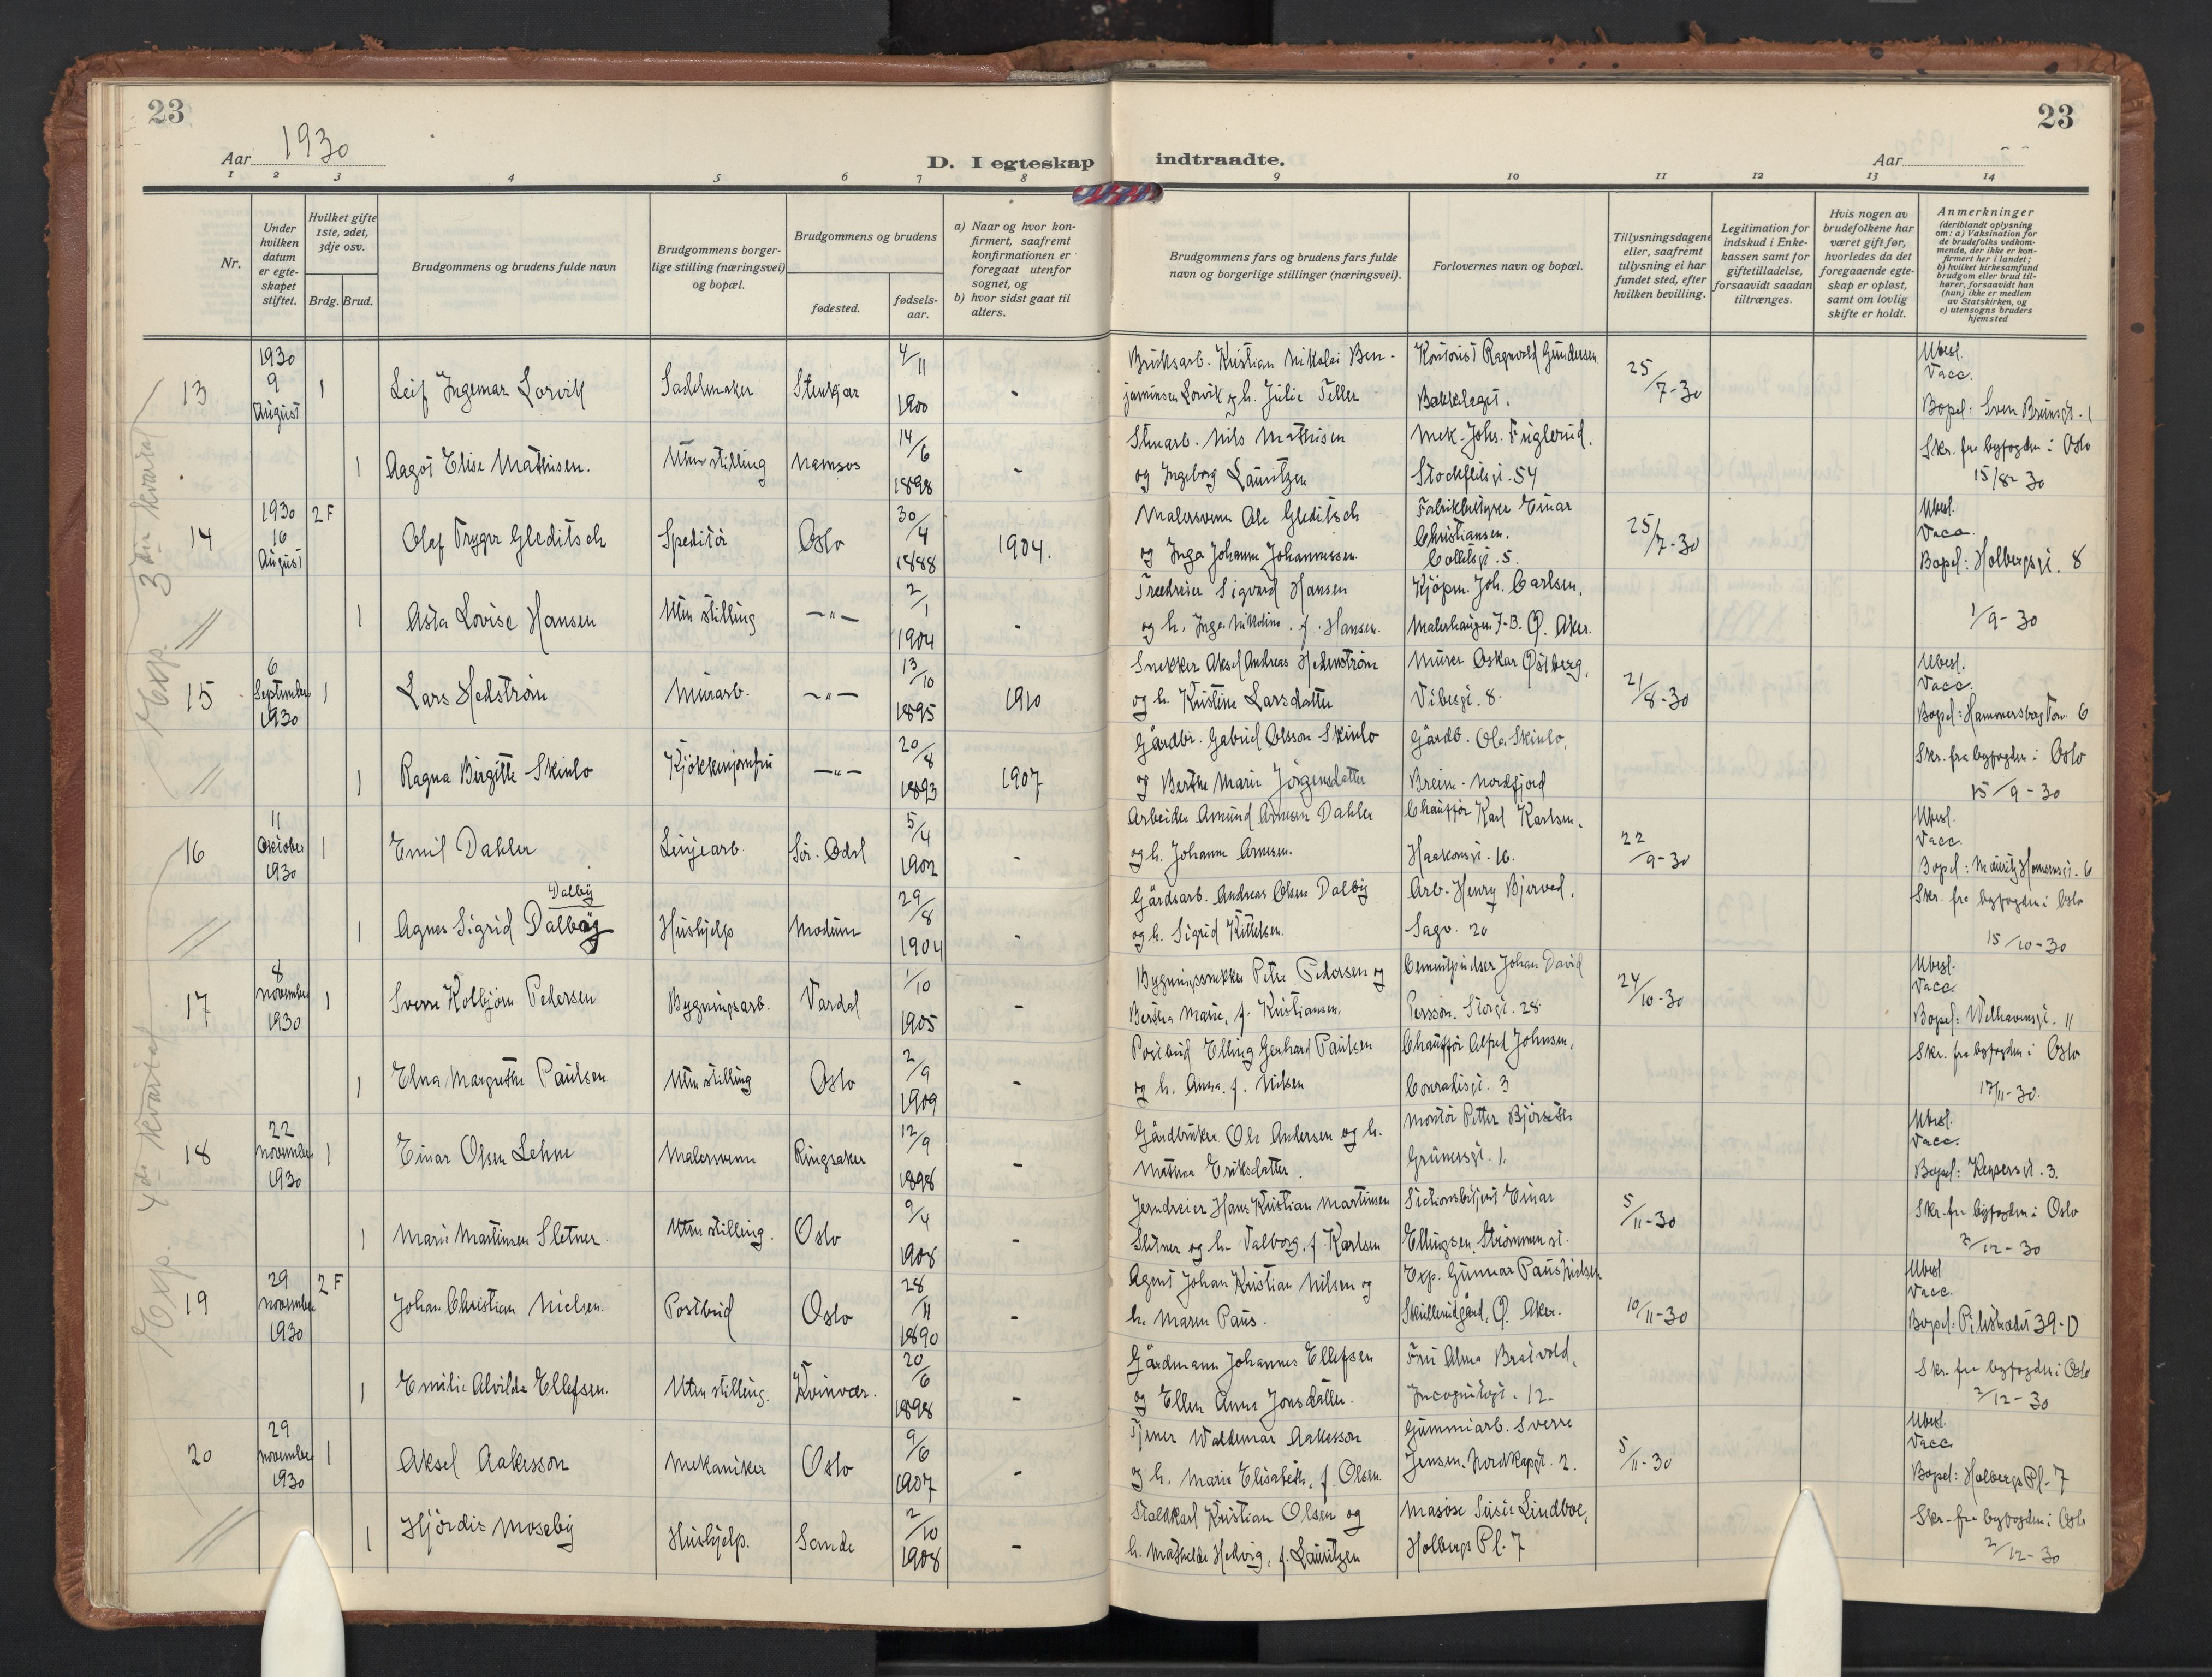 23
23
Aar 1930
D. I egteskap indtraadte.
Aar
1 2 3 4 5 6 7 8 9 10 11 12 13 14
Nr.
Under hvilken datum er egteskapet stiftet.
Hvilket gifte 1ste, 2det, 3dje osv.
Brdg. Brud.
Brudgommens og brudens fulde navn
Brudgommens borgerlige stilling (næringsvei) og bopæl.
Brudgommens og brudens
fødested.
fødselsaar.
a) Naar og hvor konfirmert, saafremt konfirmationen er foregaat utenfor sognet, og
b) hvor sidst gaat til alters.
Brudgommens fars og brudens fars fulde navn og borgerlige stillinger (næringsvei).
Forlovernes navn og bopæl.
Tillysningsdagene eller, saafremt tillysning ei har fundet sted, efter hvilken bevilling.
Legitimation for indskud i Enkekassen samt for giftetilladelse, forsaavidt saadan tiltrænges.
Hvis nogen av brudefolkene har været gift før, hvorledes da det foregaaende egteskap er opløst, samt om lovlig skifte er holdt.
Anmerkninger (deriblandt oplysning om: a) Vaksination for de brudefolks vedkommende, der ikke er konfirmert her i landet; b) hvilket kirkesamfund brudgom eller brud tilhører, forsaavidt han (hun) ikke er medlem av Statskirken, og c) utensogns bruders hjemsted
3die kvartal
Exp.
13 1930 9 August 1 Leif Ingemar Lorvik Sadelmaker Stenkjær 4/11 1900 - Bruksarb. Kristian Nikolai Benjaminsen Lorvik og h. Julie Teller Kontorist Ragnvald Gundersen Bækkelaget. 25/7-30 Ubesl. Vacc. Bopel: Sven Brunsgt. 1
1 Aagot Elise Mathisen. Uten stilling Namsos 14/6 1898 - Stenarb. Nils Mathisen og Ingeborg Lauritzen Mek. Johs. Fuglerud. Stockfletsgt. 54 Skr. fra byfogden i Oslo 15/8-30
14 1930 16 August 2 F Olaf Trygve Gleditsch Speditør Oslo 30/4 1888 1904. Malersvenn Ole Gleditsch og Inga Johanne Johannessen. Fabrikbestyrer Einar Christiansen. Collettsgt. 5. 25/7-30 Ubesl. Vacc. Bopel: Holbergsgt. 8
1 Asta Lovise Hansen Uten stilling -"- 2/1 1904 - Trædreier Sigvard Hansen og h. Inga Nikoline f. Hansen. Kjøpm. Joh. Carlsen. Malerhaugen 7-B. Ø. Aker. 1/9-30
15 6 September 1930 1 Lars Hedstrøm Murarb. -"- 13/10 1895 1910 Snekker Aksel Andreas Hedenstrøm og h. Kristine Larsdatter Murer Oskar Østberg, Vibesgt. 8. 21/8-30 Ubesl. Vacc. Bopel: Hammersborg Torv 6
1 Ragna Birgitte Skinlo Kjøkkenjomfru -"- 20/8 1893 1907 Gårdbr. Gabriel Olsson Skinlo og Berthe Marie Jørgensdatter Gårdb. Ola Skinlo, Breim - Nordfjord Skr. fra byfogden i Oslo 15/9-30
4de kvartal
Exp.
16 11 Oktober 1930 1 Emil Dahler Linjearb. Sør. Odal 5/4 1902 - Arbeider Amund Arnesen Dahler og h. Johanne Arnesen. Chauffør Karl Karlsen. Haakonsgt. 16. 22/9-30 Ubesl. Vacc. Bopel: Mauritz Hansensgt. 6
1 Agnes Sigrid Dalbøg Dalby Hushjelp Modum 29/8 1904 - Gårdsarb. Andreas Olsen Dalby og h. Sigrid Kittelsen. Arb. Henry Bjerved. Sagv. 20 Skr. fra byfogden i Oslo 15/10-30
17 8 November 1930 1 Sverre Kolbjørn Pedersen Bygningsarb. Vardal 1/10 1905 - Bygningssnekker Petter Pedersen og Bertha Marie, f. Kristiansen. Cementpudser Johan David Persson. Storgt. 28 24/10-30 Ubesl. Vacc. Bopel: Welhavensgt. 11
1 Elna Margrethe Paulsen Uten stilling Oslo 2/9 1909 - Postbud Elling Gerhard Paulsen og h. Anna. f. Nilsen Chauffør Alfred Johnsen, Conradisgt. 3 Skr. fra byfogden i Oslo 17/11-30.
18 22 November 1930 1 Einar Olsen Lehne Malersvenn Ringsaker 12/9 1898 - Gårdbruker Ole Andersen og h. Mathea Eriksdatter. Montør Petter Bjørseth Grünersgt. 1. Ubesl. Vacc. Bopel: Keysersgt. 3.
1 Marie Martinsen Sletner Uten stilling. Oslo 9/4 1908 - Jerndreier Hans Kristian Martinsen Sletner og h. Valborg, f. Karlsen Sektionsbetjent Einar Ellingsen. Strømmen st. 5/11-30 Skr. fra byfogden i Oslo 2/12-30
19 29 November 1930 2 F Johan Christian Nielsen. Postbud Oslo 28/11 1890 - Agent Johan Kristian Nilsen og h. Maren Paus. Exp. Gunnar Paus Nielsen Skullerudgård, Ø. Aker. 10/11-30 Ubesl Vacc. Bopel: Pilestrædet 39-D
1 Emilie Alvilde Ellefsen. Uten stilling. Kvinvær. 20/6 1898 - Gårdmann Johannes Ellefsen og Ellen Anna Jonsdatter. Fru Alma Bratvold, Incognitogt. 12. Skr. fra byfogden i Oslo 2/12-30
20 29 November 1930 1 Aksel Aakesson Mekaniker Oslo 9/6 1907 - Tjener Waldemar Aakesson og h. Marie Elisabeth, f. Olsen. Gummiarb. Sverre Jensen. Nordkapgt. 2. 5/11-30 Ubesl. Vacc. Bopel: Holbergs Pl. 7
1 Hjørdis Moseby Hushjelp. Sande 2/10 1908 - Staldkarl Kristian Olsen og h. Mathilde Hedvig, f. Lauritzen Masøse Susie Lindboe, Holbergs Pl. 7 Skr. fra byfogden i Oslo 2/12-30